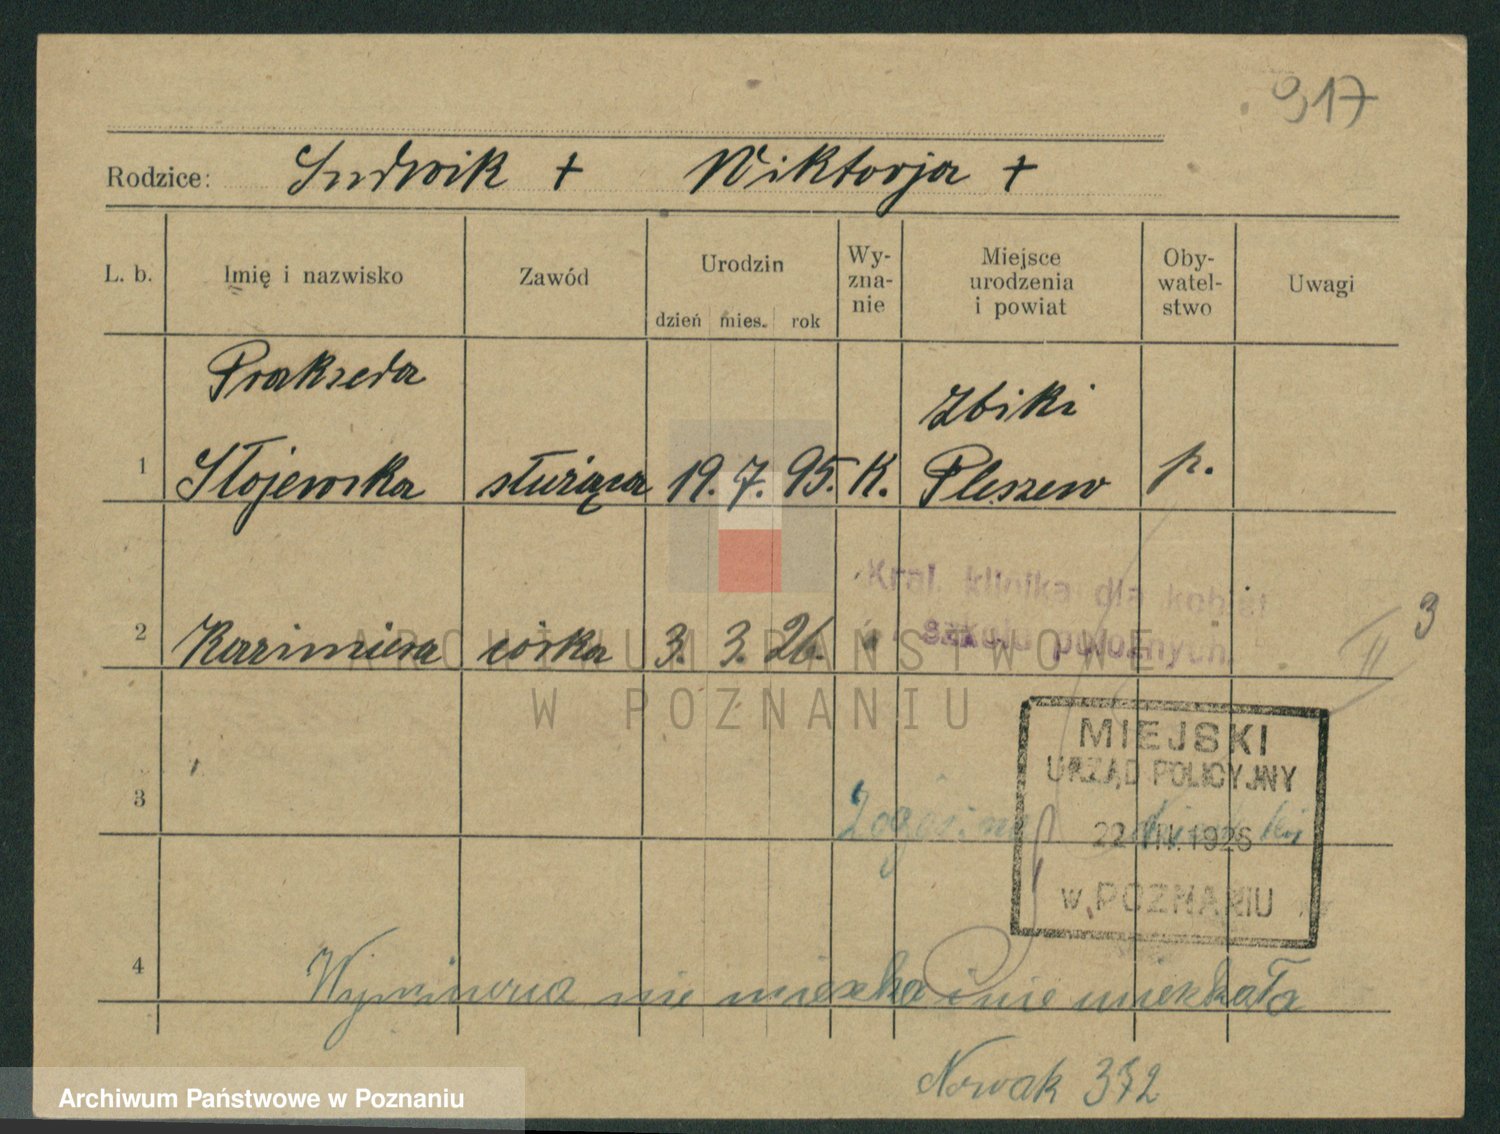 917
Rodzice: Ludwik + Wiktorja +
L. b. Imię i nazwisko Zawód Urodzin dzień mies. rok Wy-zna-nie Miejsce urodzenia i powiat Oby-watel-stwo Uwagi
Prakseda Zbiki
1 Stojewska służąca 19. 7. 95. K. Pleszew p.
Kral. klinika dla kobiet
szkoła położnych.
2 Kazimiera córka 3. 3. 26. " 3
II
MIEJSKI
URZĄD POLICYJNY
3
22 IV. 1926
w POZNANIU
4 Wymieniona nie mieszka i nie mieszkała
Nowak 372
ARCHIWUM PAŃSTWOWE
W POZNANIU
Archiwum Państwowe w Poznaniu